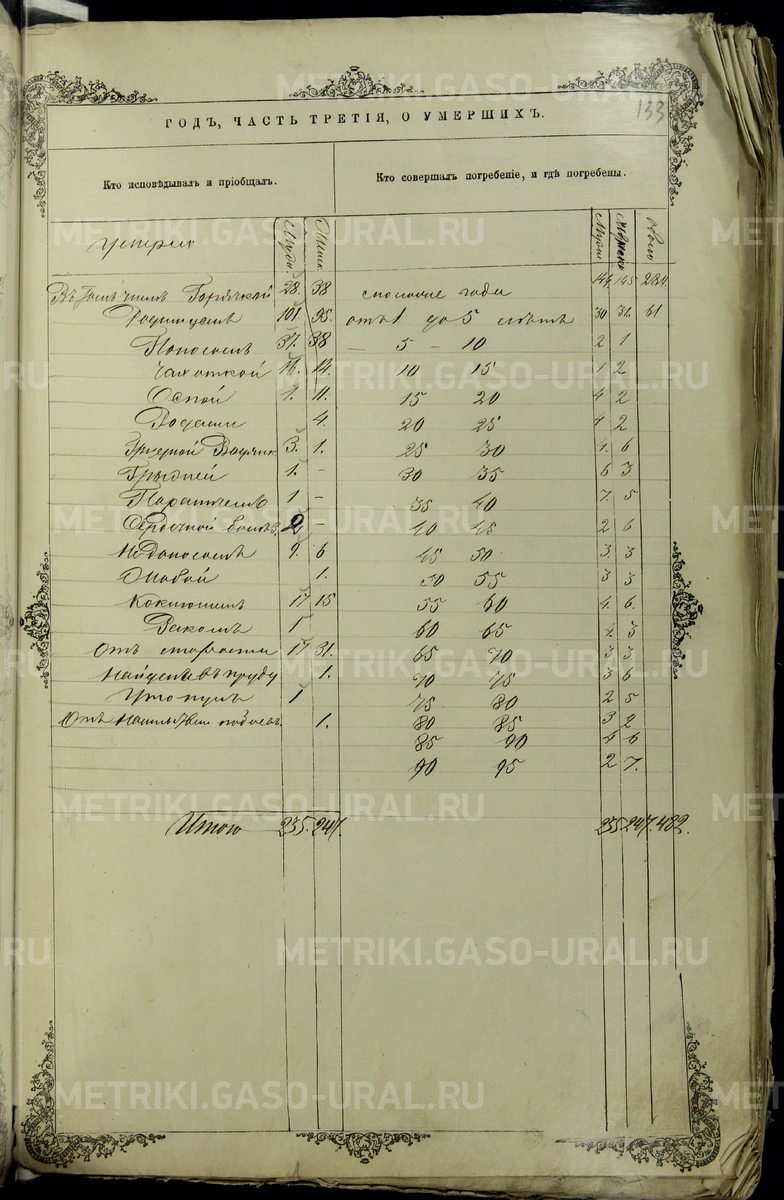 METRIKI.GASO-URAL.RU
133
ГОДЪ, ЧАСТЬ ТРЕТІЯ, О УМЕРШИХЪ.
Кто исповѣдывалъ и пріобщалъ.
Кто совершалъ погребеніе, и гдѣ погребены.
Умерли
Горячкой 28 38
Родимцемъ 101 95.
отъ 1 до 5 лѣтъ 30 31. 61
Поносомъ 37. 38
5 - 10 2 1
Чахоткой 16. 14.
10 15 1 2
Оспой 1. 11.
15 20 4 2
Родами 4.
20 25 4 2
3. 1.
25 30 4. 6
Грыжей 1. -
30 35 6 3
Параличемъ 1 -
35 40 7. 5
Сердечной 2 -
40 45 2 6
Недоноскомъ 9. 6
45 50 3. 3
1.
50 55 3 3
Коклюшемъ 17 15
55 60 4. 6.
Ракомъ 1
60 65 4. 3
Отъ старости 17 31.
65 70 3 3.
въ пруду 1.
70 75 3 6
Утонулъ 1
75 80 2 5
Отъ 1.
80 85 3 2
85 90 4 6
90 95 2 7.
Итого 235. 247.
235. 247. 482.